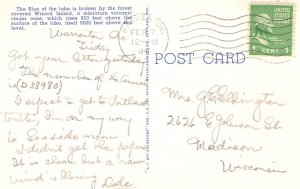 The Blue of the lake is broken by the forest
covered Wizard Island, a miniature volcanic
cinder cone, which rises 850 feet above the
surface of the lake, itself 6000 feet above sea
level.
Friday
Got your letter yesterday
The number of Returned
is (D38980)
I expect to get to Portland
tonite, I'm on my way
to Seaside now
I didn't get the papers
It is clear but a raw
wind is blowing Dale
FEB
12 M
1 CENT 1
POST CARD
Mrs.
2626 E Johnson St
Madison
Wisconsin